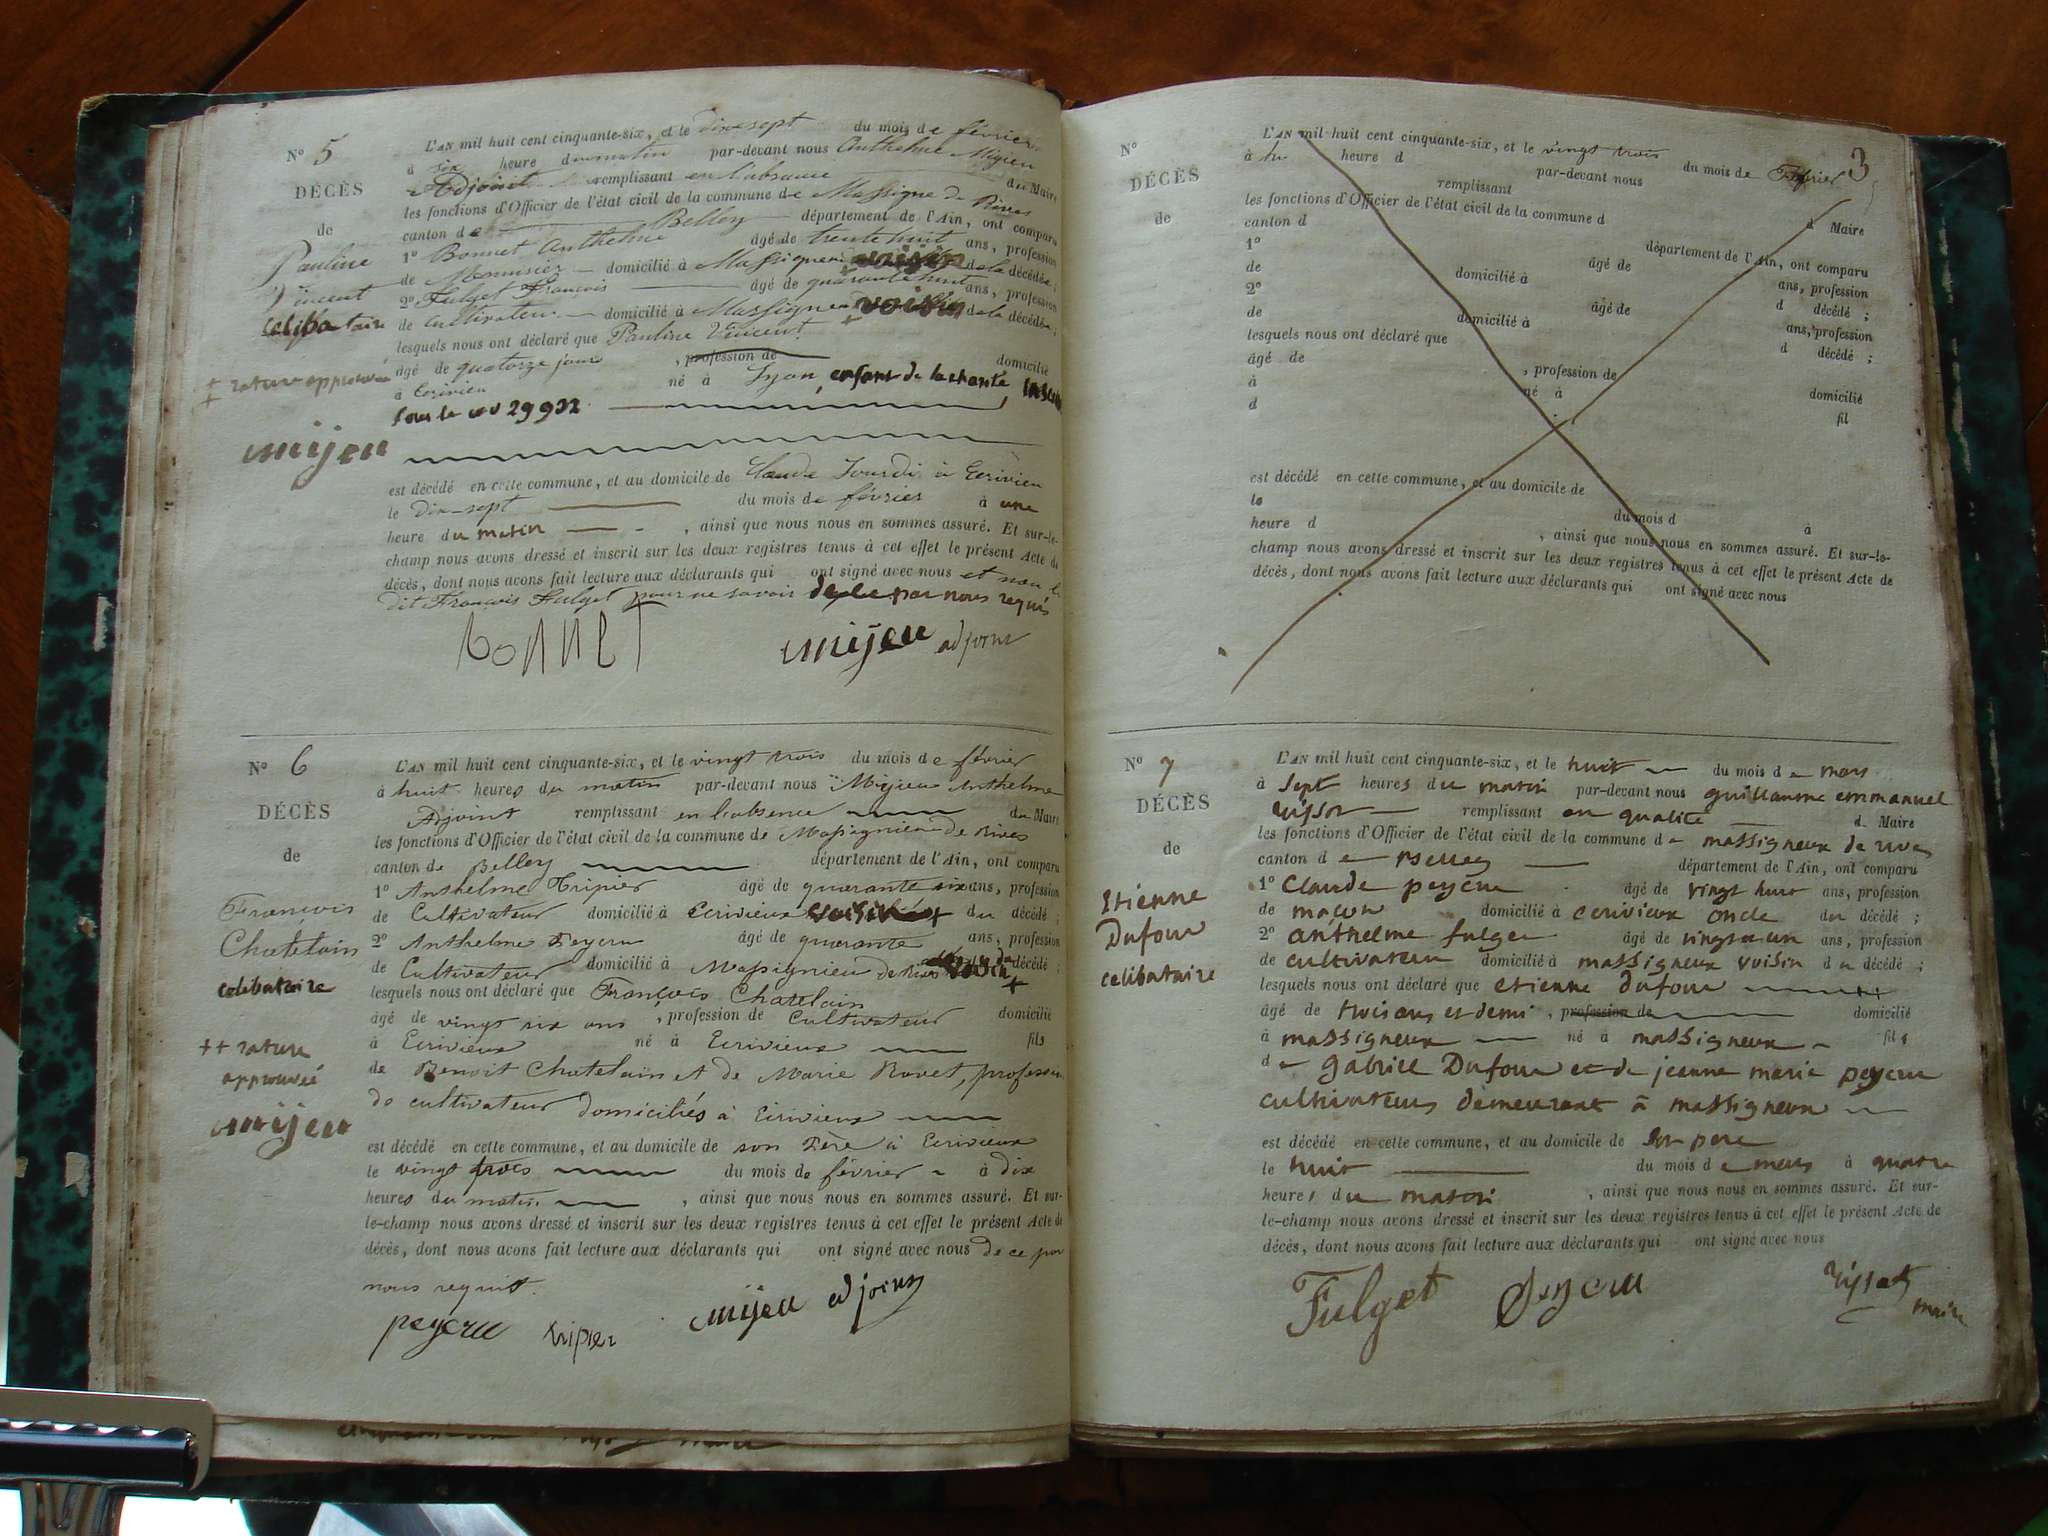 N° 5
DÉCÈS
de
Pauline
Vincent
celibataire
++ rature approuvée
mijeu
L'AN mil huit cent cinquante-six, et le dix-sept du mois de février
à six heure du matin par-devant nous Anthelme Mijeu
Adjoint remplissant en l'absence du Maire
les fonctions d'Officier de l'état civil de la commune de Massigneu de Rives
canton de Belley département de l'Ain, ont comparu
1° Bonnet Anthelme âgé de trente huit ans, profession
de Menuisier domicilié à Massigneu voisin de la décédée ;
2° Fulget François âgé de quarante huit ans, profession
de Cultivateur domicilié à Massigneu voisin de la décédée ;
lesquels nous ont déclaré que Pauline Vincent
âgé de quatorze jours , profession de domicilié
à Ecrivieu né à Lyon, enfant de la charité, inscrit
sous le no 29932
est décédé en cette commune, et au domicile de Claude Jourdi à Ecrivieu
le dix-sept du mois de février à une
heure du matin , ainsi que nous nous en sommes assuré. Et sur-le-
champ nous avons dressé et inscrit sur les deux registres tenus à cet effet le présent Acte de
décès, dont nous avons fait lecture aux déclarants qui ont signé avec nous et non le
dit François Fulget pour ne savoir de ce par nous requis
BONNET mijeu adjoint
N° 6
DÉCÈS
de
François
Chatelain
celibataire
++ rature
approuvée
mijeu
L'AN mil huit cent cinquante-six, et le vingt trois du mois de février
à huit heures du matin par-devant nous Mijeu Anthelme
Adjoint remplissant en l'absence du Maire
les fonctions d'Officier de l'état civil de la commune de Massignieu de Rives
canton de Belley département de l'Ain, ont comparu
1° Anthelme Tripier âgé de quarante six ans, profession
de Cultivateur domicilié à Ecrivieux voisin du décédé ;
2° Anthelme Peyeru âgé de quarante ans, profession
de Cultivateur domicilié à Massignieu de Rives voisin décédé ;
lesquels nous ont déclaré que François Chatelain
âgé de vingt six ans , profession de Cultivateur domicilié
à Ecrivieux né à Ecrivieux fils
de Benoit Chatelain et de Marie Bovet, profession
de cultivateur domiciliés à Ecrivieux
est décédé en cette commune, et au domicile de son Père à Ecrivieux
le vingt trois du mois de février à dix
heures du matin , ainsi que nous nous en sommes assuré. Et sur-
le-champ nous avons dressé et inscrit sur les deux registres tenus à cet effet le présent Acte de
décès, dont nous avons fait lecture aux déclarants qui ont signé avec nous de ce par
nous requit.
peyeru tripier mijeu adjoint
3
N°
DÉCÈS
de
L'AN mil huit cent cinquante-six, et le vingt trois du mois de Février
à heure d par-devant nous
remplissant d Maire
les fonctions d'Officier de l'état civil de la commune d
canton d département de l'Ain, ont comparu
1° âgé de ans, profession
de domicilié à d décédé ;
2° âgé de ans, profession
de domicilié à d décédé ;
lesquels nous ont déclaré que
âgé de , profession de domicilié
à né à fil
d
est décédé en cette commune, et au domicile de
le du mois d à
heure d , ainsi que nous nous en sommes assuré. Et sur-le-
champ nous avons dressé et inscrit sur les deux registres tenus à cet effet le présent Acte de
décès, dont nous avons fait lecture aux déclarants qui ont signé avec nous
N° 7
DÉCÈS
de
Etienne
Dufour
celibataire
L'AN mil huit cent cinquante-six, et le huit du mois de mars
à sept heures du matin par-devant nous guillaume emmanuel
remplissant en qualité d Maire
les fonctions d'Officier de l'état civil de la commune de massigneux de rives
canton de Belley département de l'Ain, ont comparu
1° Claude peyeru âgé de vingt huit ans, profession
de maçon domicilié à ecrivieux oncle du décédé ;
2° anthelme fulget âgé de vingt un ans, profession
de cultivateur domicilié à massigneux voisin du décédé ;
lesquels nous ont déclaré que etienne dufour
âgé de trois ans et demi , profession de domicilié
à massigneux né à massigneux fils
de gabriel Dufour et de jeanne marie peyeru
cultivateurs demeurant à massigneux
est décédé en cette commune, et au domicile de son pere
le huit du mois de mars à quatre
heures du matin , ainsi que nous nous en sommes assuré. Et sur-
le-champ nous avons dressé et inscrit sur les deux registres tenus à cet effet le présent Acte de
décès, dont nous avons fait lecture aux déclarants qui ont signé avec nous
Fulget peyeru maire